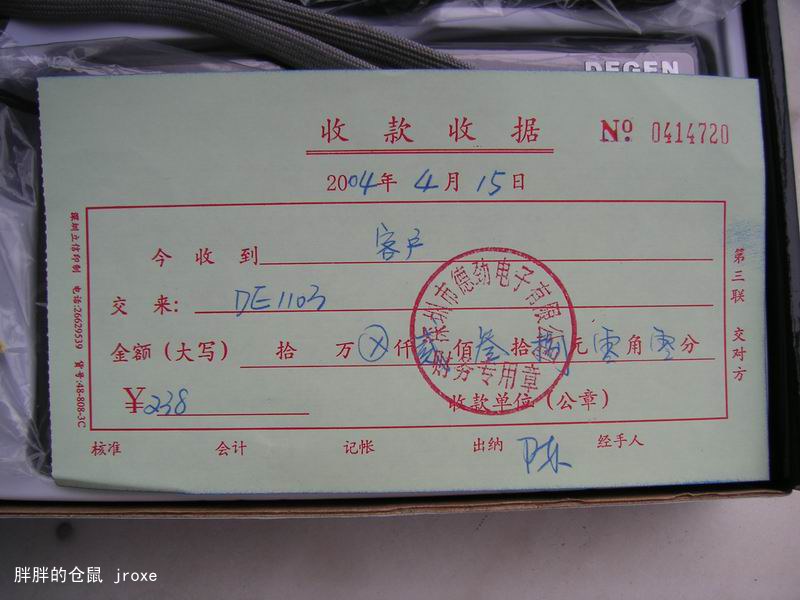 DEGEN
收款收据
No 0414720
2004年4月15日
今收到 客户
交来: DE1103
金额(大写) 拾 万 ⊗仟 贰佰 叁拾 捌元 零角 零分
¥238
收款单位(公章)
核准 会计 记帐 出纳 陈 经手人
深圳市德劲电子有限公司
财务专用章
第三联 交对方
深圳立信印制 电话:26629539 货号:48-808-3C
胖胖的仓鼠 jroxe